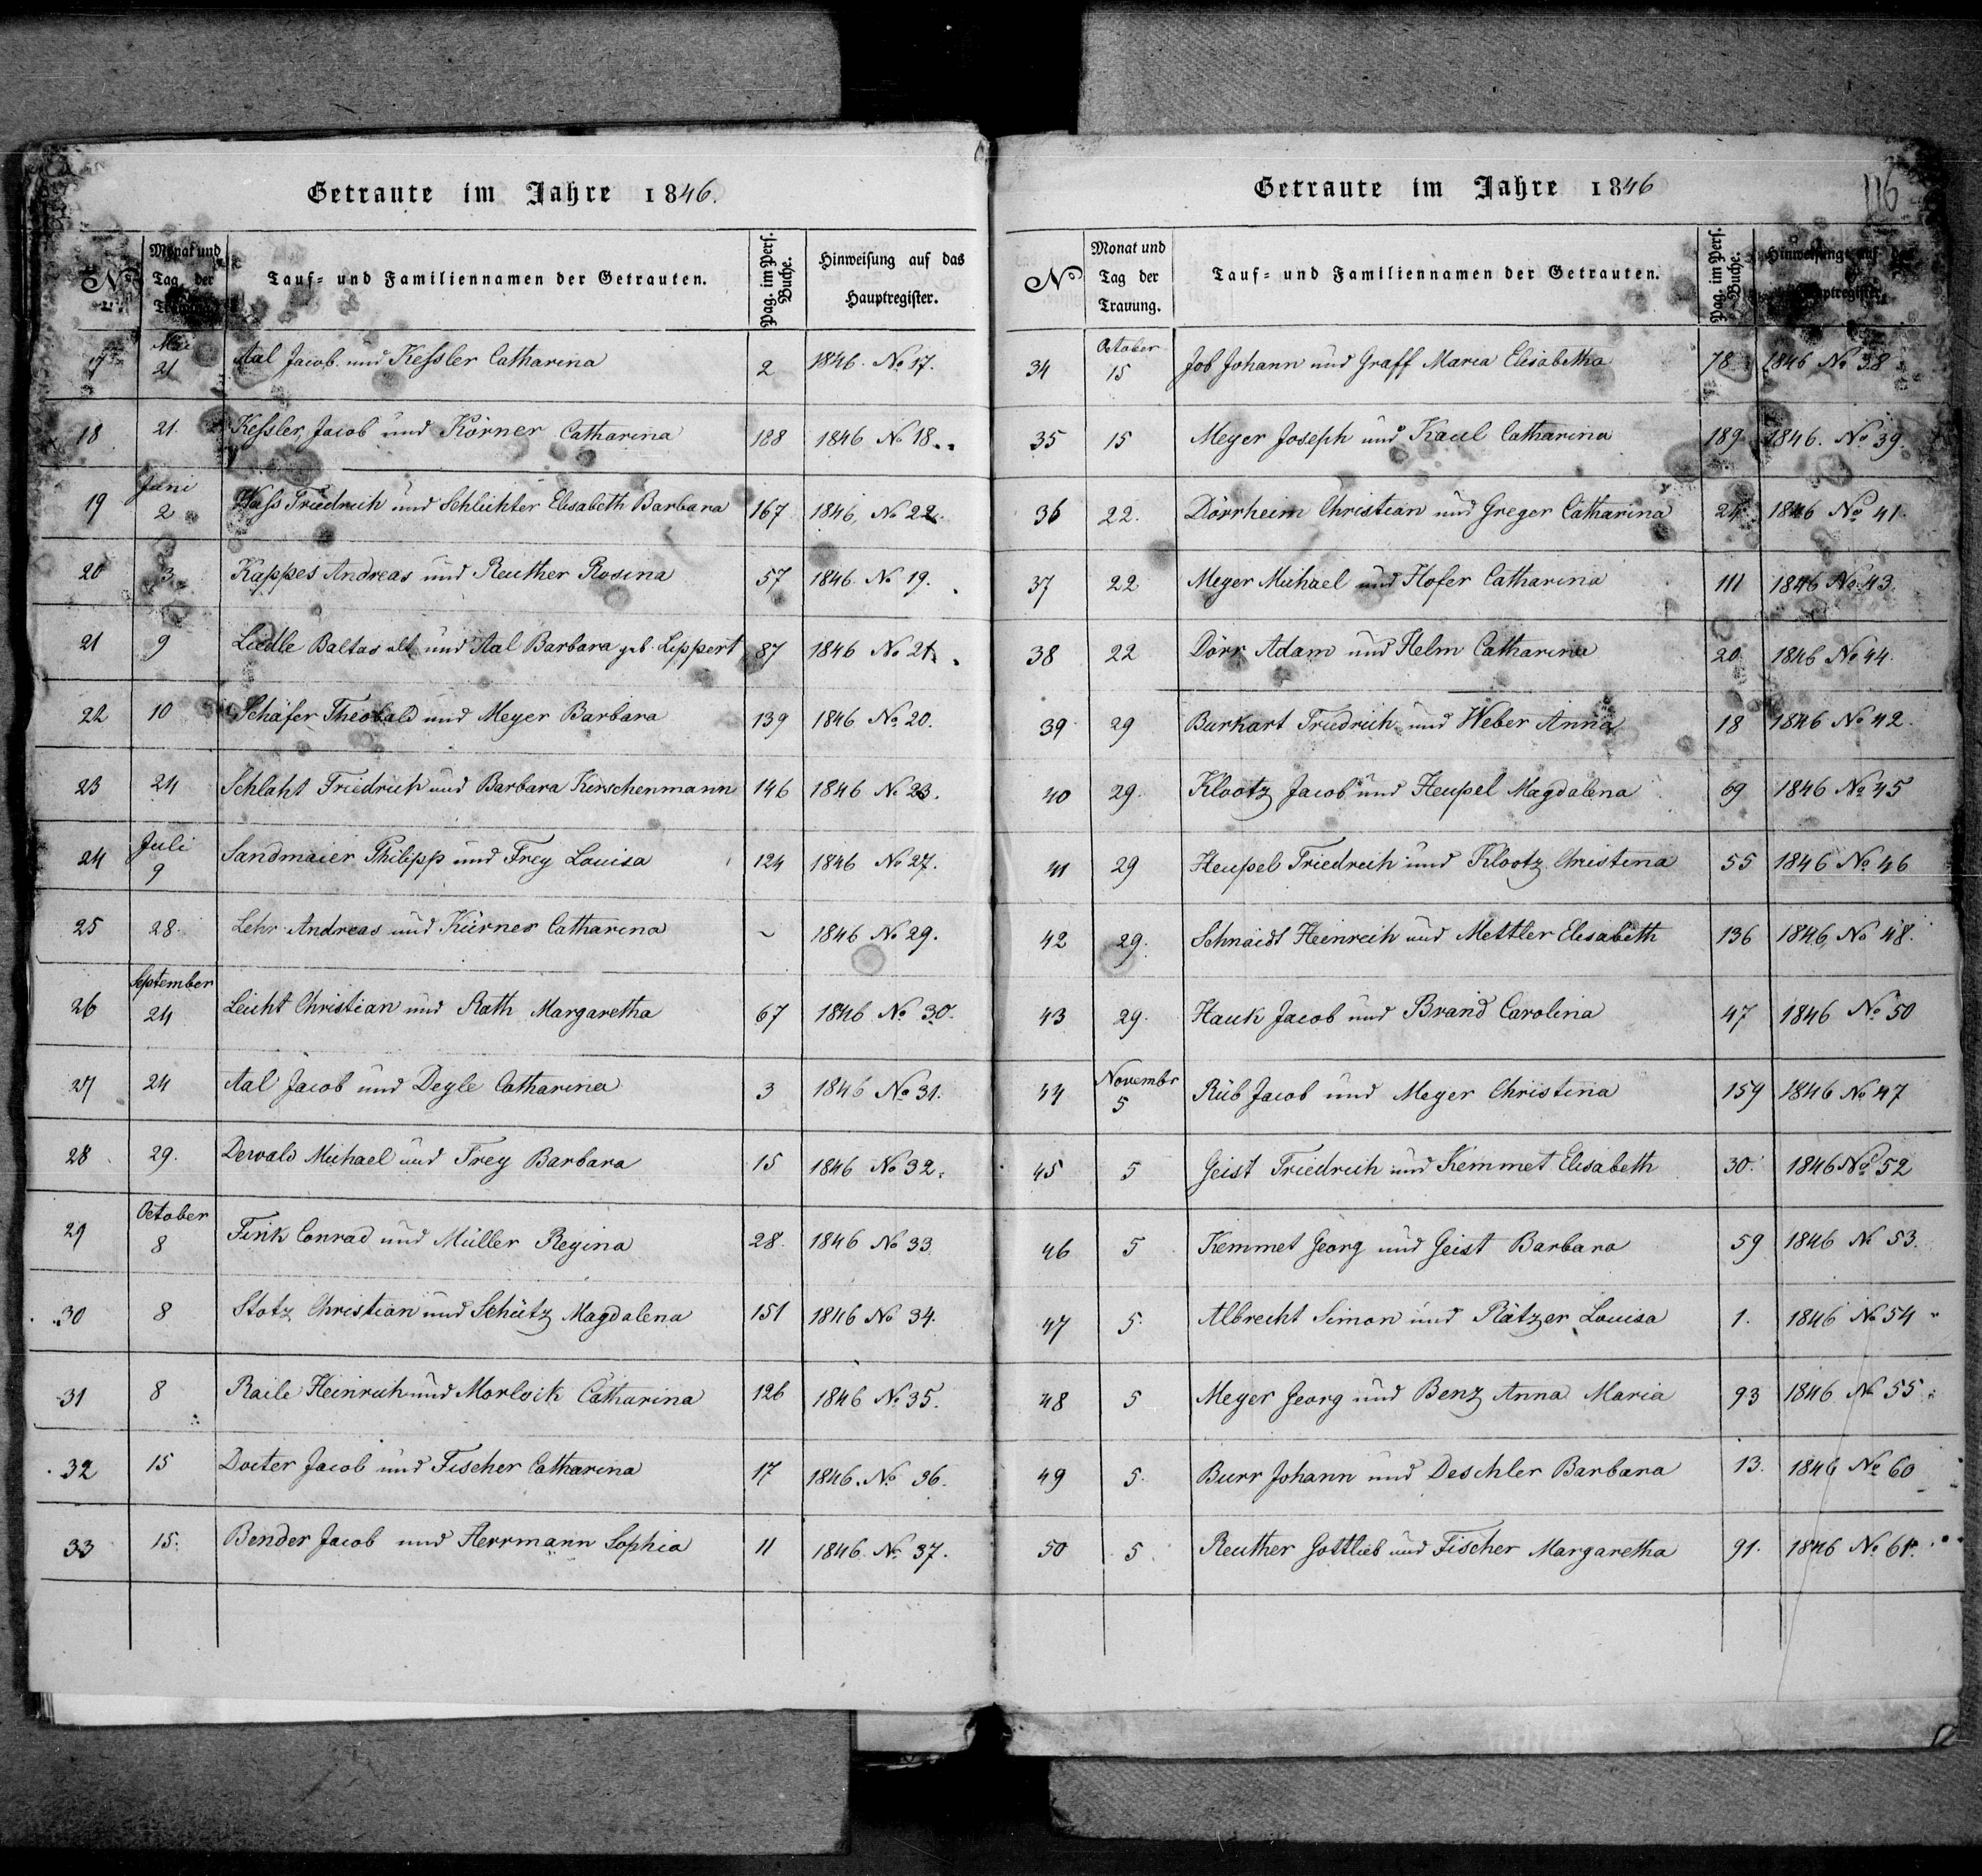 Getraute im Jahre 1846.
No Monat und Tag der Trauung. Tauf- und Familiennamen der Getrauten. Pag. im Pers. Buche. Hinweisung auf das Hauptregister.
17 Mai 21 Aal Jacob und Kessler Catharina 2 1846. No 17.
18 21. Kessler, Jacob und Körner Catharina 188 1846 No 18.
19 Juni 2 Friedrich und Schlichter Elisabeth Barbara 167 1846, No 22.
20 3 Kappes Andreas und Reuther Rosina 57 1846. No 19.
21 9 Liedle Baltas alt und Aal Barbara geb. Leppert 87 1846 No 21.
22 10 Schäfer Theobald und Meyer Barbara 139 1846 No 20.
23 24 Schlaht Friedrich und Barbara Kirschenmann 146 1846 No 23.
24 Juli 9 Sandmaier Philipp und Frey Louisa 124 1846 No 27.
25 28. Lehr Andreas und Kürner Catharina ~ 1846 No 29.
26 September 24 Leicht Christian und Rath Margaretha 67 1846 No 30.
27 24 Aal Jacob und Degle Catharina 3 1846 No 31.
28 29. Dewald Michael und Frey Barbara 15 1846 No 32.
29 October 8 Fink Conrad und Müller Regina 28. 1846 No 33
30 8 Stotz Christian und Schütz Magdalena 151 1846 No 34.
31 8 Raile Heinrich und Morlock Catharina 126 1846 No 35.
32 15 Docter Jacob und Fischer Catharina 17 1846. No 36.
33 15. Bender Jacob und Herrmann Sophia 11 1846. No 37.
Getraute im Jahre 1846
116
No Monat und Tag der Trauung. Tauf- und Familiennamen der Getrauten. Pag. im Pers. Buche. Hinweisung auf das Hauptregister.
34 October 15 Job Johann und Graff Maria Elisabetha 78 1846 No 38
35 15 Meyer Joseph und Kaul Catharina 189 1846. No 39.
36 22. Dörrheim Christian und Greger Catharina 24 1846 No 41.
37 22 Meyer Michael und Hofer Catharina 111 1846 No 43.
38 22 Dörr Adam und Helm Catharina 20 1846 No 44.
39 29 Burkart Friedrich und Weber Anna 18 1846 No 42.
40 29. Klootz Jacob und Heupel Magdalena 69 1846 No 45
41 29 Heupel Friedrich und Klootz Christina 55 1846 No 46
42 29. Schnaidt Heinrich und Mettler Elisabeth 136 1846, No 48.
43 29. Hauk Jacob und Brand Carolina 47 1846 No 50
44 Novembr 5 Rüb Jacob und Meyer Christina 159 1846 No 47
45 5 Geist Friedrich und Kemmet Elisabeth 30. 1846 No 52
46 5 Kemmet Georg und Geist Barbara 59 1846 No 53.
47 5. Albrecht Simon und Rätzer Louisa 1. 1846 No 54
48 5 Meyer Georg und Benz Anna Maria 93 1846 No 55
49 5. Burr Johann und Deschler Barbara 13. 1846 No 60
50 5. Reuther Gottlieb und Fischer Margaretha 91. 1846 No 61.